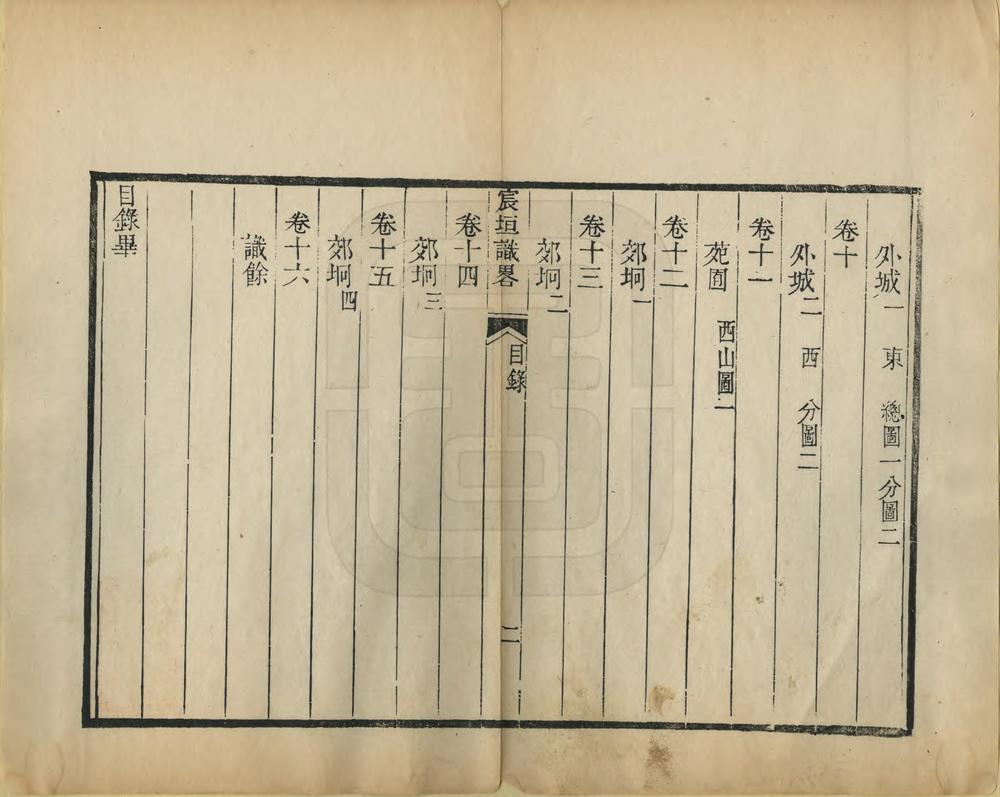 外城一　東　總圖一分圖二
卷十
外城二　西　分圖二
卷十一
苑囿　西山圖一
卷十二
郊坰一
卷十三
郊坰二
宸垣識畧　目錄　二
卷十四
郊坰三
卷十五
郊坰四
卷十六
識餘
目錄畢